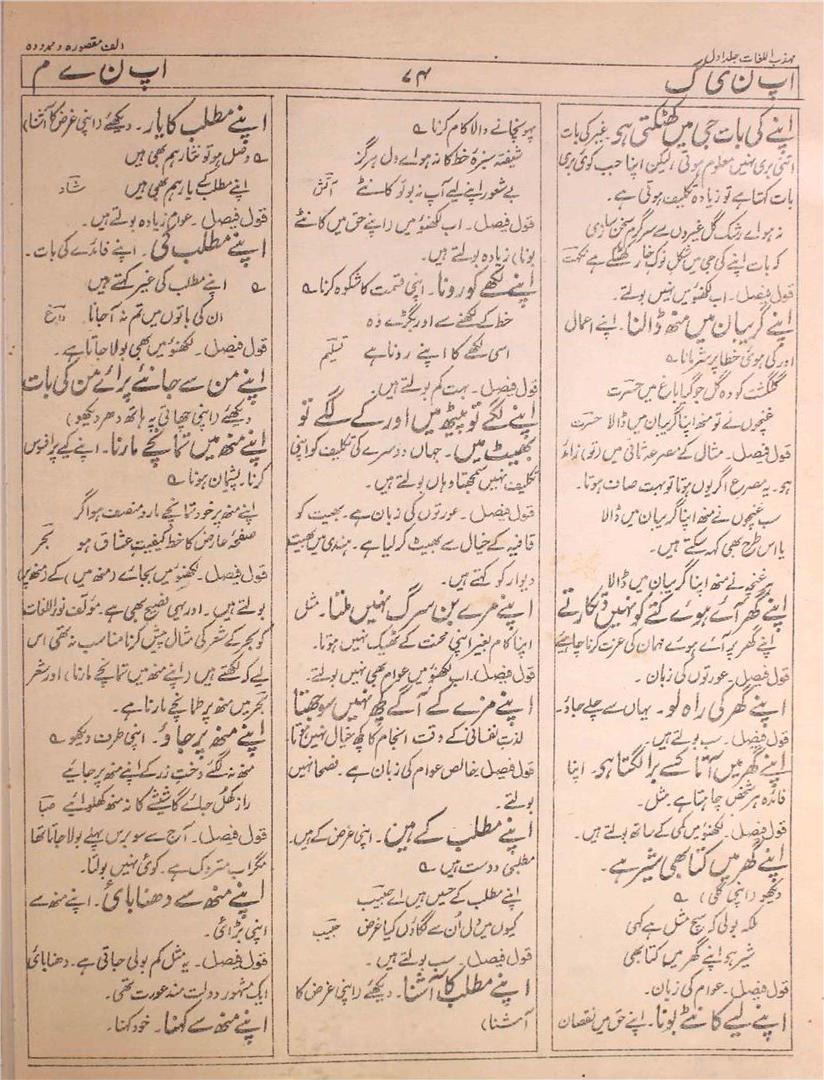 مہذب اللغات جلد اول
الف مقصورہ و ممدودہ
اپ ن ی گ
۷۴
اپ ن ے م
اپنے کی بات جی میں کھٹکتی ہو۔ غیر کی بات
اتنی بری نہیں معلوم ہوتی لیکن اپنا جب کوئی بری
بات کہتا ہے تو زیادہ تکلیف ہوتی ہے۔
نہ ہو اے رشک گل غیروں سے سرگرم سخن سازی
کہ بات اپنے کی جی میں شکل نوک خار کھٹکے ہے نکہت
قول فیصل۔ اب لکھنؤ میں نہیں بولتے۔
اپنے گریبان میں منھ ڈالنا۔ اپنے اعمال
اور کی ہوئی خطا پر شرمانا ؎
گلگشت کو وہ گل جو گیا باغ میں حسرت
غنچوں نے تو منھ اپنا گریبان میں ڈالا حسرت
قول فیصل۔ مثال کے مصرعہ ثانی میں (تو) زائد
ہو۔ یہ مصرع اگر یوں ہوتا تو بہت صاف ہوتا۔
سب غنچوں نے منھ اپنا گریبان میں ڈالا
یا اس طرح بھی کہہ سکتے ہیں۔
ہر غنچہ نے منھ اپنا گریبان میں ڈالا
اپنے گھر آئے ہوئے کتے کو نہیں دتکارتے
اپنے گھر پر آئے ہوئے مہمان کی عزت کرنا چاہیے
قول فیصل۔ عورتوں کی زبان۔
اپنے گھر کی راہ لو۔ یہاں سے چلے جاؤ۔
قول فیصل۔ سب بولتے ہیں۔
اپنے گھر میں آتا کسے برا لگتا ہو۔ اپنا
فائدہ ہر شخص چاہتا ہے۔ مثل۔
قول فیصل۔ لکھنؤ میں کمی کے ساتھ بولتے ہیں۔
اپنے گھر میں کتا بھی شیر ہے۔
دیکھو (اپنی گلی) ؎
ملکہ بولی کہ سچ مثل ہے کہی
شیر ہو اپنے گھر میں کتا بھی
قول فیصل۔ عوام کی زبان۔
اپنے لیے کانٹے بونا۔ اپنے حق میں نقصان
پہونچانے والا کام کرنا ؎
شیفتہ سبزۂ خط کا نہ ہو اے دل ہرگز
بے شعور اپنے لیے آپ نہ بو تو کانٹے آتش
قول فیصل۔ اب لکھنؤ میں (اپنے حق میں کانٹے
بونا) زیادہ بولتے ہیں۔
اپنے لکھے کو رونا۔ اپنی قسمت کا شکوہ کرنا ؎
خط کے لکھنے سے اور بگڑے وہ
اسی لکھے کا اپنے رونا ہے تسلیم
قول فیصل۔ بہت کم بولتے ہیں۔
اپنے لگے تو پیٹھ میں اور کے لگے تو
بھیٹ میں۔ جہاں دوسرے کی تکلیف کو اپنی
تکلیف نہیں سمجھتا وہاں بولتے ہیں۔
قول فیصل۔ عورتوں کی زبان ہے۔ بھیت کو
قافیہ کے خیال سے بھیٹ کر لیا ہے۔ ہندی میں بھیت
دیوار کو کہتے ہیں۔
اپنے مرے بن سرگ نہیں ملتا۔ مثل
اپنا کام بغیر اپنی محنت کے ٹھیک نہیں ہوتا۔
قول فیصل۔ اب لکھنؤ میں عوام بھی نہیں بولتے۔
اپنے مزے کے آگے کچھ نہیں سوجھتا
لذت نفسانی کے وقت انجام کا کچھ خیال نہیں ہوتا
قول فیصل۔ خالص عوام کی زبان ہے۔ فصحا نہیں
بولتے۔
اپنے مطلب کے ہیں۔ اپنی غرض کے ہیں۔
مطلبی دوست ہیں ؎
اپنے مطلب کے حسیں ہیں اے حبیب
کیوں میں دل اُن سے لگاؤں کیا غرض حبیب
قول فیصل۔ سب بولتے ہیں۔
اپنے مطلب کا آشنا۔ دیکھئے (اپنی غرض کا
آشنا)
اپنے مطلب کا یار۔ دیکھئے (اپنی غرض کا آشنا)
؎ وصل ہو تو نثار ہم بھی ہیں
اپنے مطلب کے یار ہم بھی ہیں شاد
قول فیصل۔ عوام زیادہ بولتے ہیں۔
اپنے مطلب کی۔ اپنے فائدے کی بات۔
؎ اپنے مطلب کی غیر کہتے ہیں
ان کی باتوں میں تم نہ آجانا داغ
قول فیصل۔ لکھنؤ میں بھی بولا جاتا ہے۔
اپنے من سے جانئے پرائے من کی بات
دیکھئے (اپنی چھاتی پہ ہاتھ دھر دیکھو)
اپنے منھ میں تمانچے مارنا۔ اپنے کیے پر افسوس
کرنا۔ پشیمان ہونا ؎
اپنے منھ پر خود تمانچے مارو منصف ہو اگر
صفحۂ عارض کا خط کیفیت عشاق ہو بحر
قول فیصل۔ لکھنؤ میں بجائے (منھ میں) کے (منھ پر)
بولتے ہیں۔ اور یہی فصیح بھی ہے۔ مؤلف نور اللغات
کو بحر کے شعر کی مثال پیش کرنا مناسب نہ تھی اس
لیے کہ لکھتے ہیں (اپنے منھ میں تمانچے مارنا) اور شعر
بحر میں منھ پر طمانچے مارنا ہے۔
اپنے منھ پر جاؤ۔ اپنی طرف دیکھو ؎
منھ نہ لگئے دخت زر کے اپنے منھ پر جائیے
راز کھل جائے گا شیشے کا نہ منھ کھلوائیے صبا
قول فیصل۔ آج سے سو برس پہلے بولا جاتا تھا
مگر اب متروک ہے۔ کوئی نہیں بولتا۔
اپنے منھ سے دھنا بائی۔ اپنے منھ سے
اپنی بڑائی۔
قول فیصل۔ یہ مثل کم بولی جاتی ہے۔ دھنا بائی
ایک مشہور دولت مند عورت تھی۔
اپنے منھ سے کہنا۔ خود کہنا۔